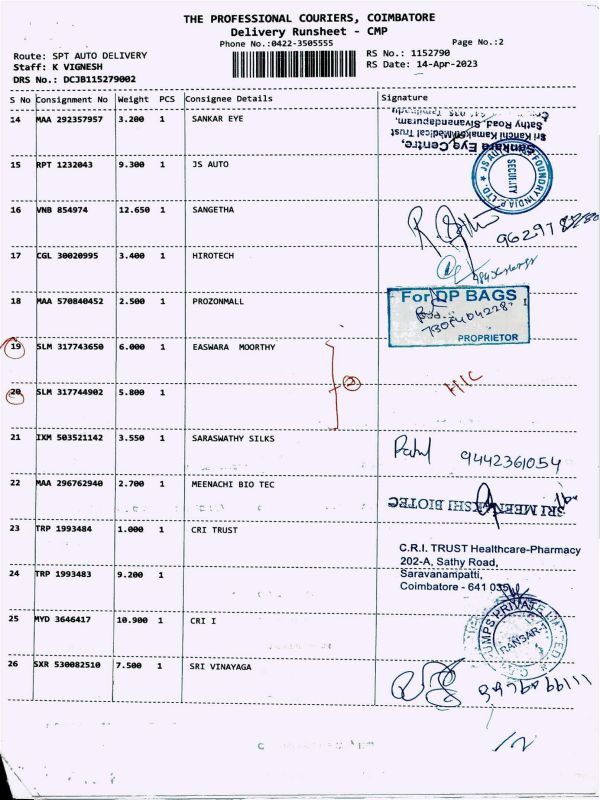 THE PROFESSIONAL COURIERS, COIMBATORE
Delivery Runsheet - CMP
Phone No.:0422-3505555
Page No.:2
Route: SPT AUTO DELIVERY
RS No.: 1152790
Staff: K VIGNESH
RS Date: 14-Apr-2023
DRS No.: DCJB115279002
S No Consignment No Weight PCS Consignee Details Signature
14 MAA 292357957 3.200 1 SANKAR EYE
Sankara Eye Centre,
Sri Kanchi Kamakoti Medical Trust
Sathy Road, Sivanandapuram,
15 RPT 1232043 9.300 1 JS AUTO
JS AUTO FOUNDRY INDIA P. LTD.
SECURITY
16 VNB 854974 12.650 1 SANGETHA
17 CGL 30020995 3.400 1 HIROTECH
18 MAA 570840452 2.500 1 PROZONMALL
For DP BAGS
PROPRIETOR
19 SLM 317743650 6.000 1 EASWARA MOORTHY
2
H/C
20 SLM 317744902 5.800 1
21 IXM 503521142 3.550 1 SARASWATHY SILKS
9442361054
22 MAA 296762940 2.700 1 MEENACHI BIO TEC
SRI MEENAKSHI BIOTEC
23 TRP 1993484 1.000 1 CRI TRUST
C.R.I. TRUST Healthcare-Pharmacy
202-A, Sathy Road,
Saravanampatti,
Coimbatore - 641 035
24 TRP 1993483 9.200 1
25 MYD 3646417 10.900 1 CRI I
26 SXR 530082510 7.500 1 SRI VINAYAGA